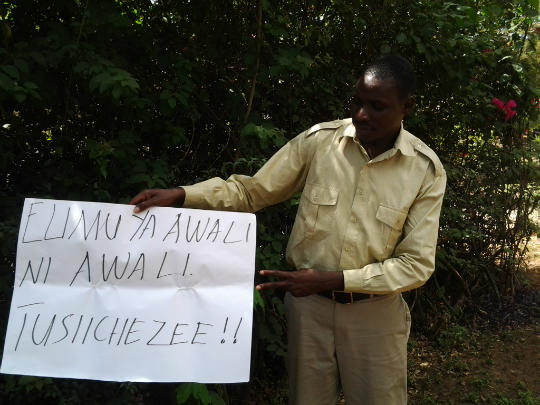 ELIMU YA AWALI
NI AWALI.
TUSIICHEZEE!!